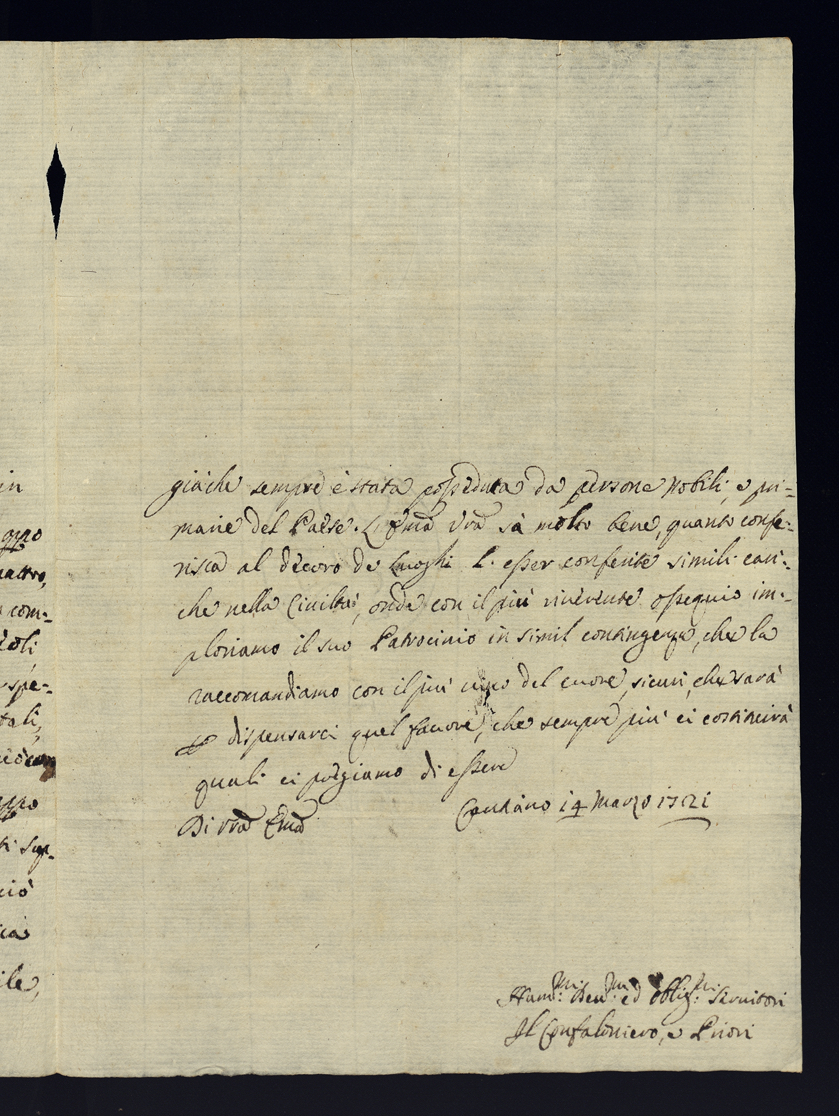 in
giache sempre è stata posseduta da persone Nobili, e pri-
marie del Paese. L'Emã Vrã sà molto bene, quanto confe-
risca al decoro de Luoghi l'esser conferite simili cari-
che nella Civiltà, onde con il più riverente ossequio im-
ploriamo il suo Patrocinio in simil contingenza, che la
raccomandiamo con il più vivo del cuore, sicuri, che sarà
p dispensarci quel favore, che sempre più ci costituirà
quali ci pregiamo di essere
Di Vrã Emã
Cantiano 14 Marzo 1721
Hum.mi Dev.mi ed Obblig.mi Servitori
Il Confaloniero, e Priori
com-
spe-
tali,